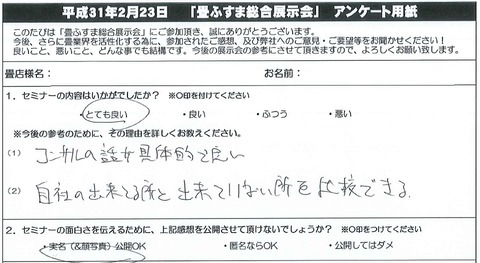 平成31年2月23日　「畳ふすま総合展示会」　アンケート用紙
このたびは「畳ふすま総合展示会」にご参加頂き、誠にありがとうございます。
今後、さらに畳業界を活性化する為に、参加されたご感想、及び弊社へのご意見・ご要望等をお聞かせください！
良いこと、悪いこと、どんな事でも結構です。今後の展示会の参考にさせて頂きますので、よろしくお願い致します。
畳店様名：　お名前：
1．セミナーの内容はいかがでしたか？　※○印を付けてください
・とても良い　・良い　・ふつう　・悪い
※今後の参考のために、その理由を詳しくお教えください。
(1)　コンサルの話が具体的で良い
(2)　自社の出来てる所と出来ていない所を比較できる
2．セミナーの面白さを伝えるために、上記感想を公開させて頂けないでしょうか？　※○印をつけてください
・実名（&顔写真）公開OK　・匿名ならOK　・公開してはダメ